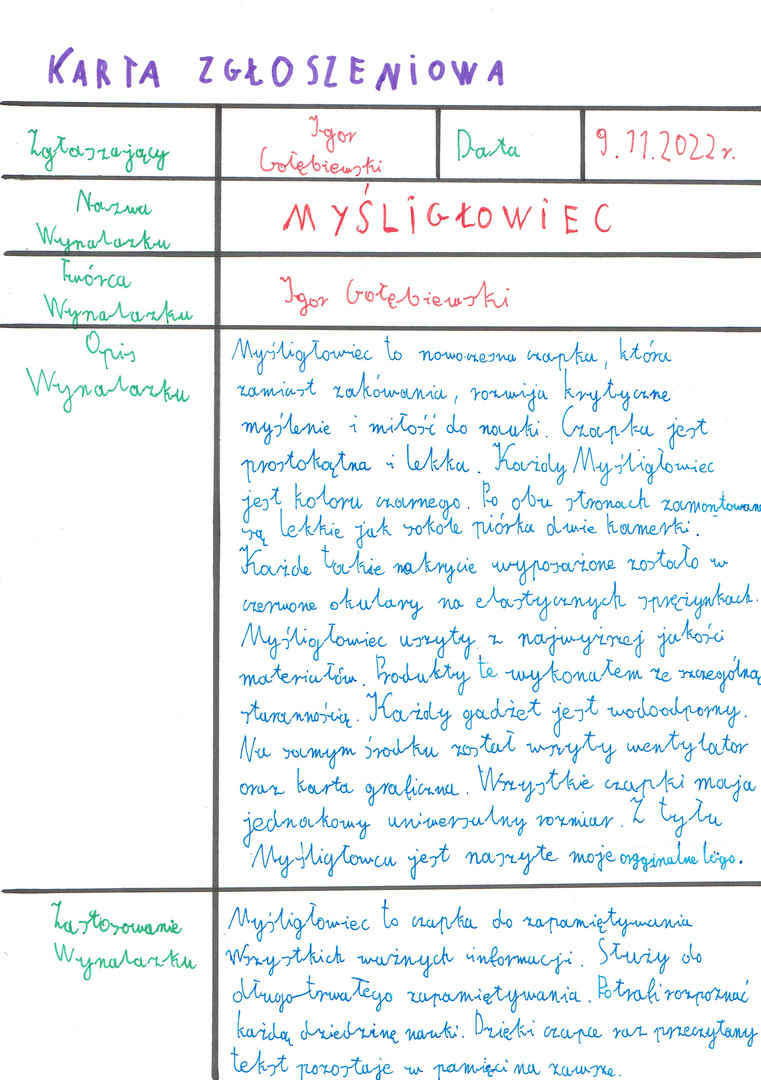 KARTA ZGŁOSZENIOWA
Zgłaszający
Igor
Gołębiewski
Data
9.11.2022r.
Nazwa
Wynalazku
MYŚLIGŁOWIEC
Twórca
Wynalazku
Igor Gołębiewski
Opis
Wynalazku
Myśligłowiec to nowoczesna czapka, która
zamiast zakówania, rozwija krytyczne
myślenie i miłość do nauki. Czapka jest
prostokątna i lekka. Każdy Myśligłowiec
jest koloru czarnego. Po obu stronach zamontowane
są lekkie jak sokole piórka dwie kamerki.
Każde takie nakrycie wyposażone zostało w
czerwone okulary na elastycznych sprężynkach.
Myśligłowiec uszyty z najwyższej jakości
materiałów. Produkty te wykonałem ze szczególną
starannością. Każdy gadżet jest wodoodporny.
Na samym środku został wszyty wentylator
oraz karta graficzna. Wszystkie czapki maja
jednakowy uniwersalny rozmiar. Z tyłu
Myśligłowca jest naszyte moje orginalne logo.
Zastosowanie
Wynalazku
Myśligłowiec to czapka do zapamiętywania
Wszystkich ważnych informacji. Służy do
długotrwałego zapamiętywania. Potrafi rozpoznać
każdą dziedzinę nauki. Dzięki czapce raz przeczytany
tekst pozostaje w pamięci na zawsze.